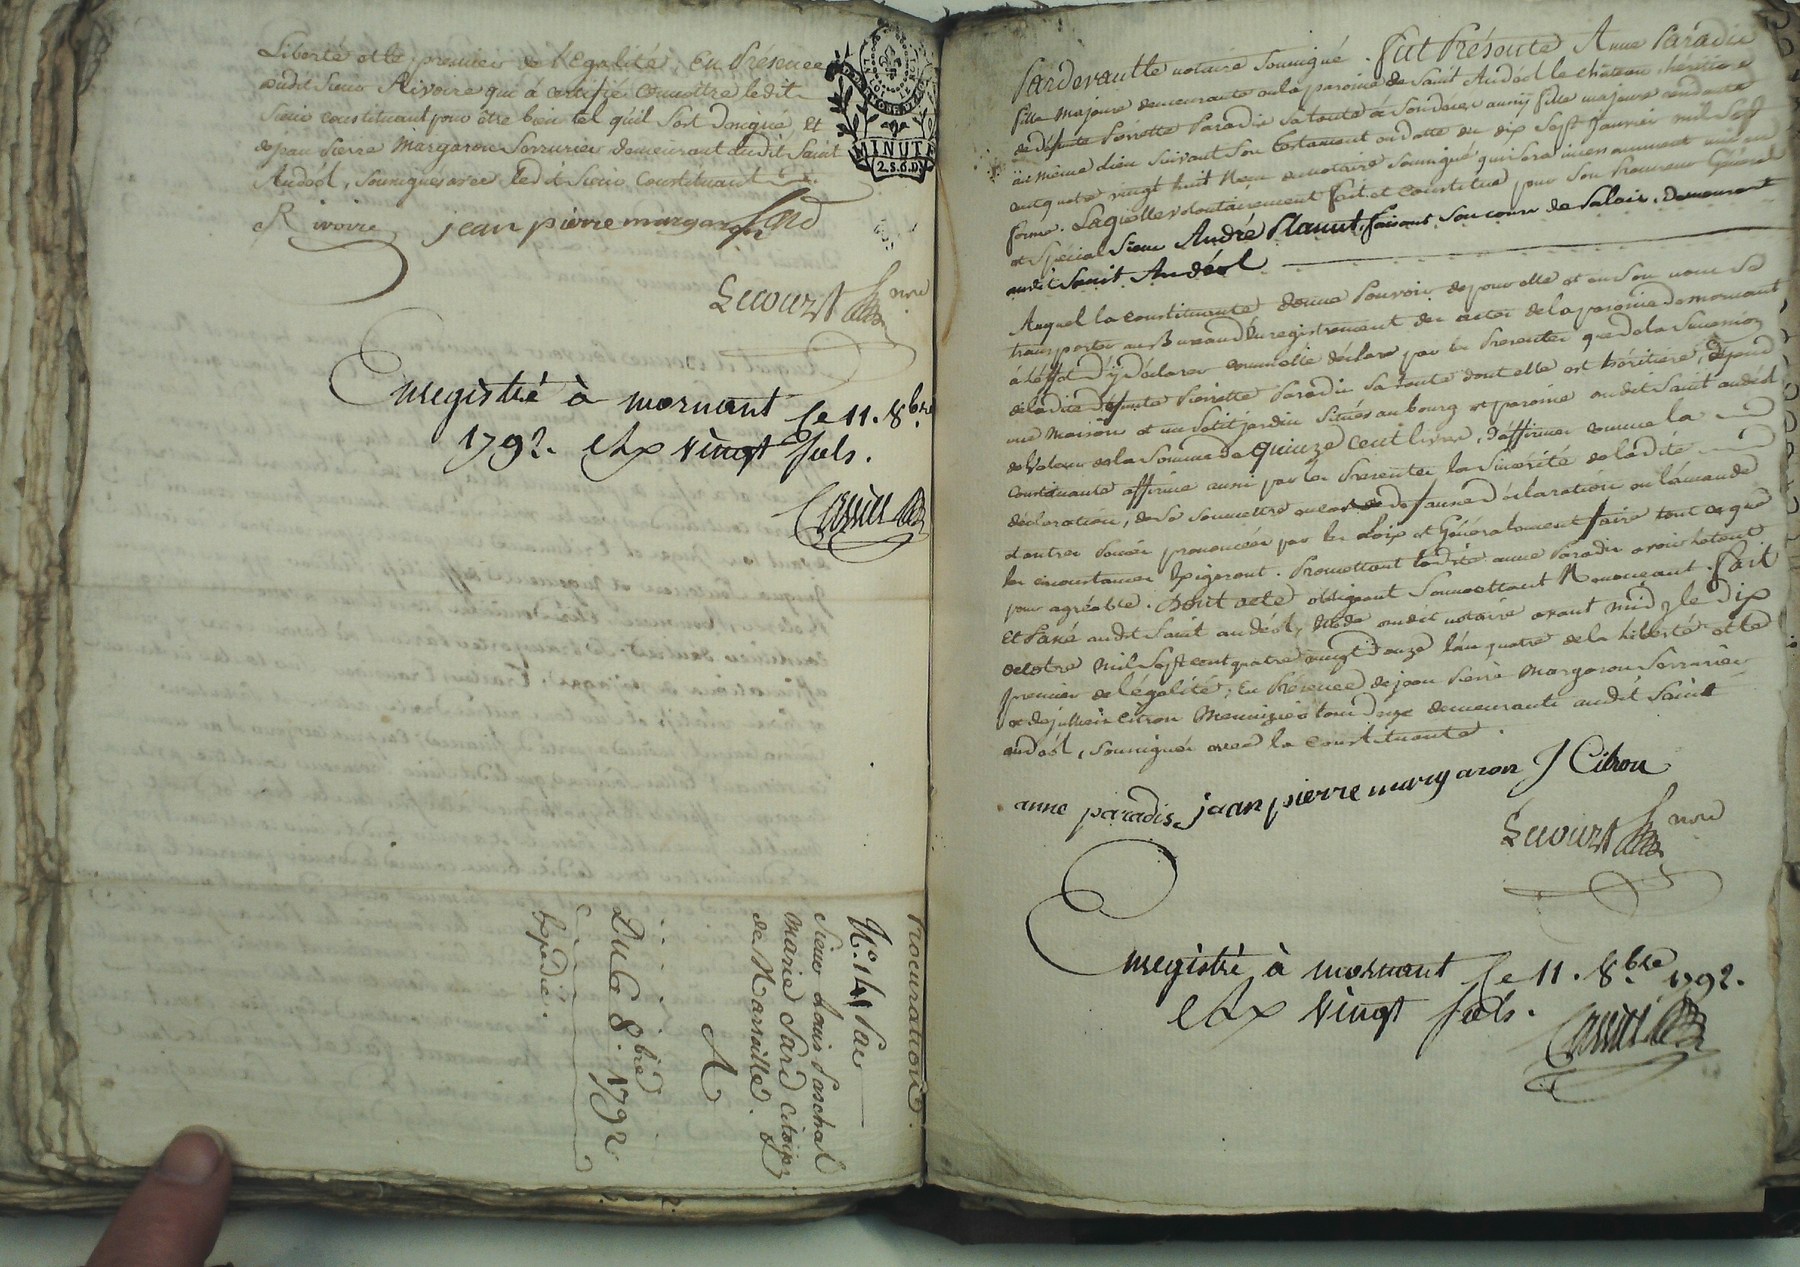 Liberté et le premier de l'Egalité, En Présence
dudit Sieur Rivoire qui à certifié Connoître ledit
Sieur constituant pour être bien tel qu'il S'est désigné, Et
de jean Pierre Margaron Serrurier demeurant audit Saint
Andéol, Soussignés avec led. Sieur Constituant
LA LOI ET LE ROI
MINUTE
2.S.6.D.
Rivoire jean pierre margaron Sard
Lecourt nore
Enregistré à mornant le 11. 8bre
1792. vingt sols.
Procuration.
N°. 141 Par
Sieur Louis Paschal
Marie Sard citoyen
de Marseille.
A
Du 8. 8bre 1792
Expédié.
Pardevant le notaire Soussigné. Fut Présente Anne Paradis
fille Majeure demeurante en la paroisse de Saint Andéol le château, héritière
de défunte Pierrette Paradis sa tante à Son décès aussy fille majeure demeurante
au même lieu Suivant Son testament en datte du dix Sept Janvier mil Sept
cent quatre vingt huit Reçu du notaire Soussigné qui Sera incessamment mis en
forme. Laquelle volontairement fait et Constitue pour Son Procureur Général
et Spécial Sieur André Planut, faisant Son cours de Palais, demeurant
audit Saint Andéol
Auquel la constituante donne Pouvoir de pour elle et en Son nom Se
transporter au Bureau d'Enregistrement des actes de la paroisse de Mornant
à l'éffet d'y Déclarer comme elle déclare par les Présentes que de la Succession
de ladite défunte Pierrette Paradis Sa tante dont elle est héritière, dépend
une Maison et un Petit jardin Situés au bourg et paroisse dudit Saint andéol
de Valeur de la Somme de Quinze cent livres, d'affirmer comme la
Constituante affirme aussi par les Présentes la Sincérité de ladite
déclaration, de Se Soumettre en cas de fausse déclaration à l'amande
et autres Peines prononcées par les Loix et Généralement faire tout ce que
les circonstances Exigeront. Promettant ladite anne Paradis avoir le tout
pour agréable. Dont acte obligeant Soumettant Renonçant. Fait
Et Passé audit Saint andéol, Etude dudit notaire avant midy le Dix
octobre Mil Sept cent quatre vingt Douze l'an quatre de la Liberté et le
premier de l'égalité; En Présence de jean Pierre Margaron Serrurier
et de jullien Citron Menuisier tous deux demeurants audit Saint
andéol, Soussignés avec la Constituante.
anne paradis jean pierre margaron J Citron
Lecourt nore
Enregistré à mornant le 11. 8bre 1792.
vingt sols.